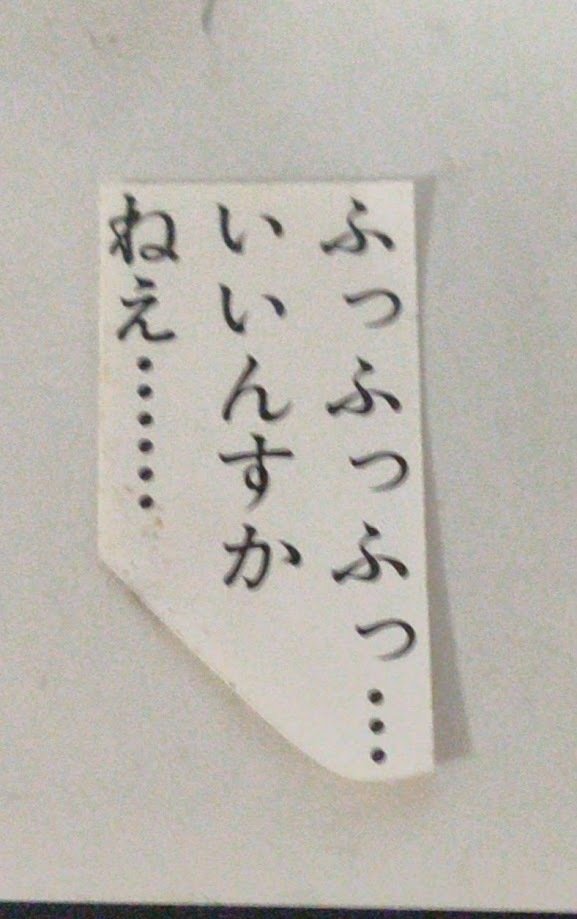 ふっふっふっ…
いいんすか
ねえ……